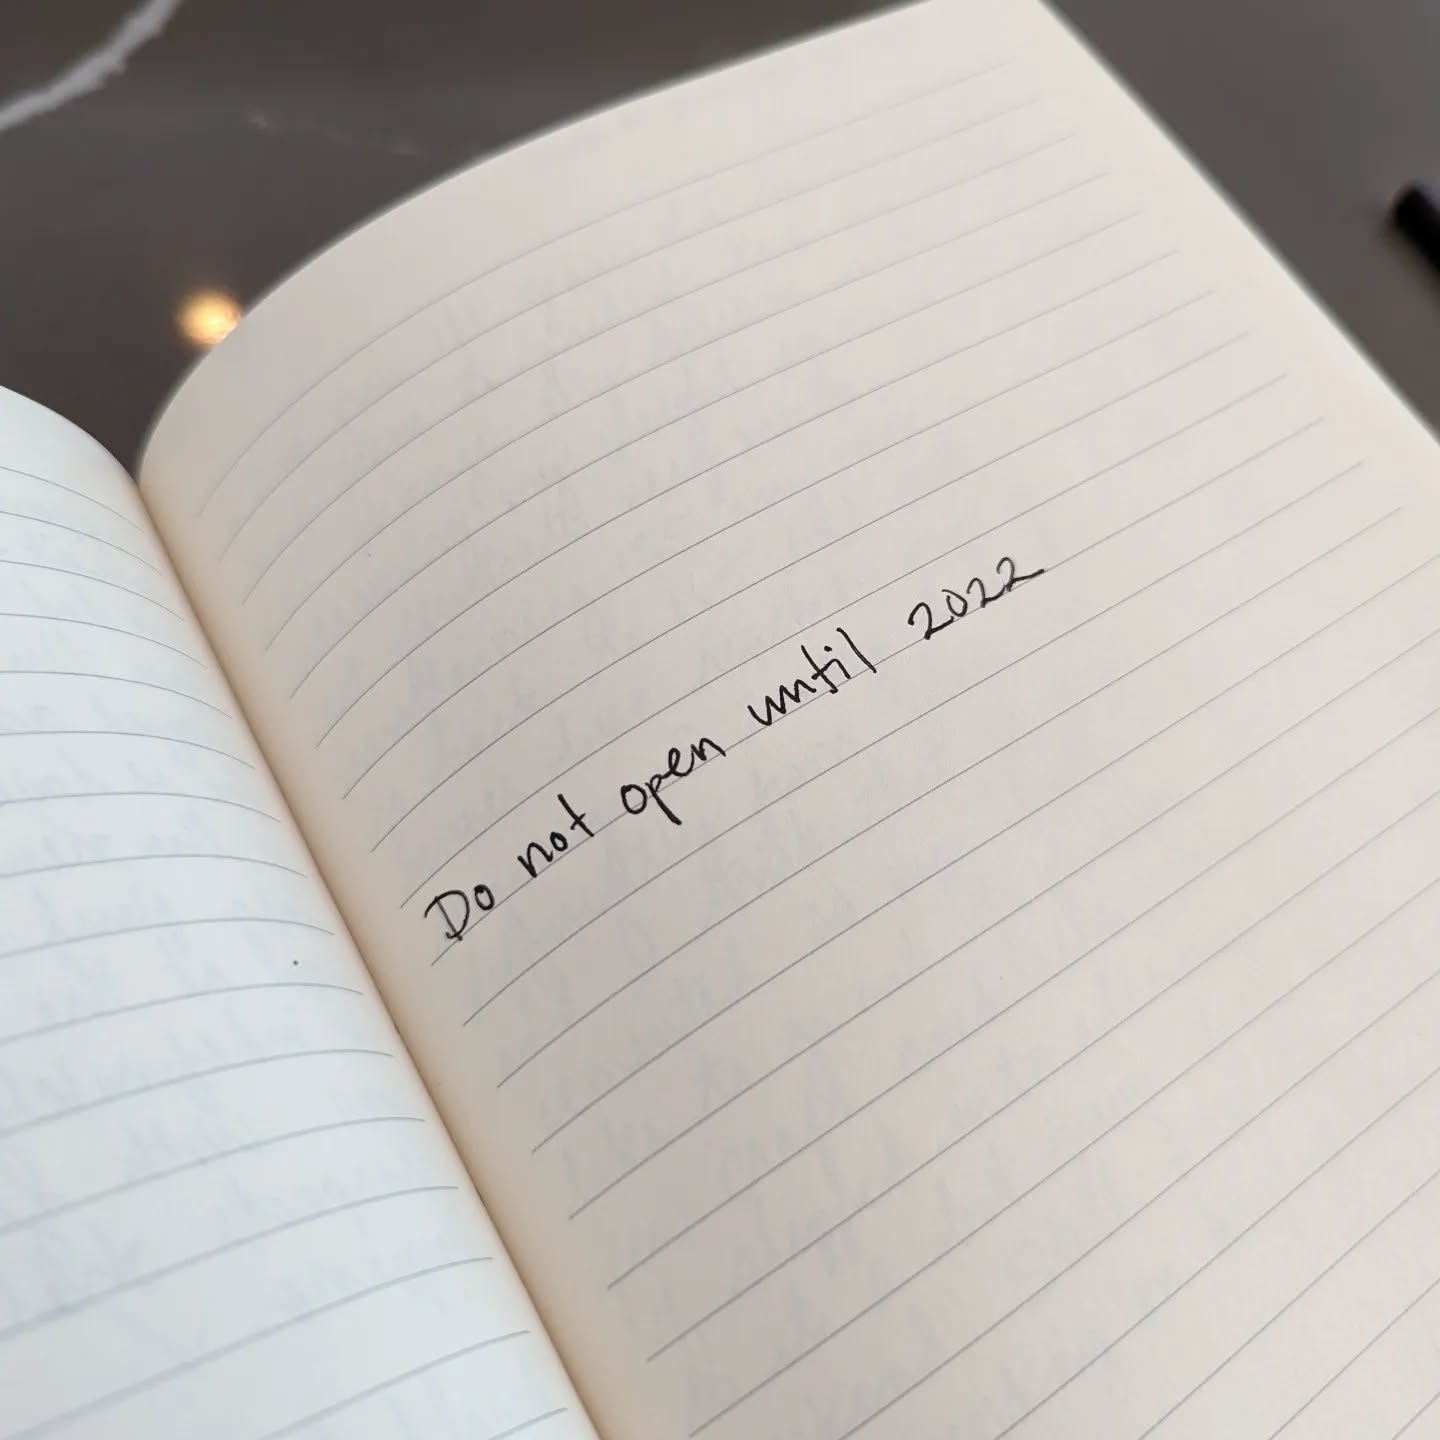 Do not open until 2022